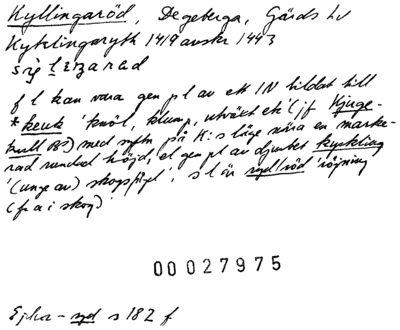 Kyllingaröd, Degeberga, Gärds hd
Kyklingaryth 1419 avskr 1443
f l kan vara gen pl av ett IN bildat till
*keuk 'knöl, klump, utväxt etc' (jf Kjuge-
kull Bl) med syftn på K:s läge nära en marke-
rad rundad höjd, el gen pl av djurbet kyckling
'(unge av) skogsfågel', s l är ryd/röd 'röjning
(fr a i skog)'
00027975
Ejder- ryd s 182 f